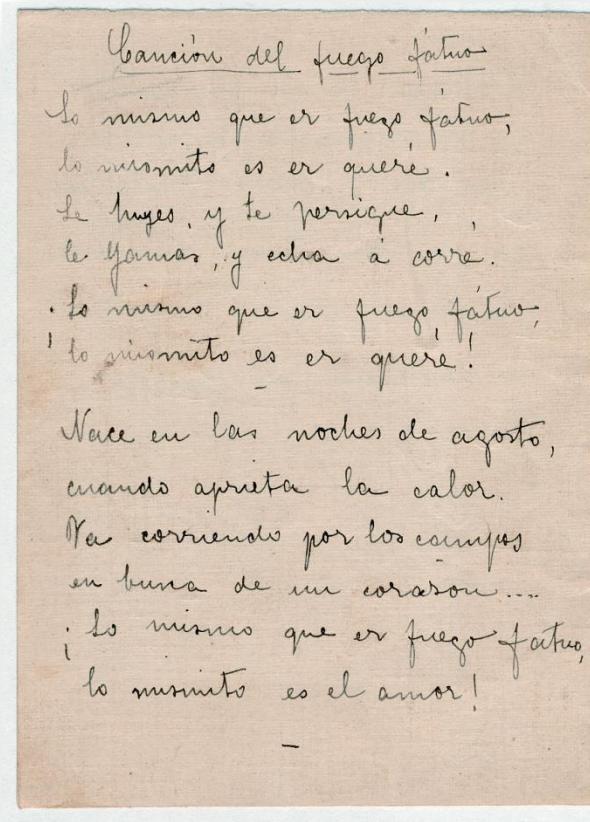 Canción del fuego fátuo
Lo mismo que er fuego fátuo,
lo mismito es er queré.
Le huyes, y te persigue,
le yamas, y echa á corré.
¡Lo mismo que er fuego fátuo,
lo mismito es er queré!
Nace en las noches de agosto,
cuando aprieta la calor.
Va corriendo por los campos
en busca de un corason....
¡Lo mismo que er fuego fatuo,
lo mismito es el amor!